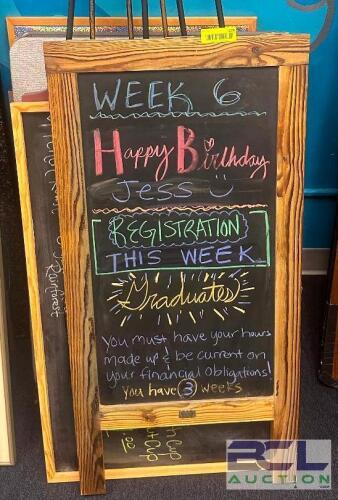 WEEK 6
Happy Birthday
Jess
REGISTRATION
THIS WEEK
Graduates
You must have your hours
made up & be current on
your financial obligations!
You have 3 weeks
RCL
AUCTION